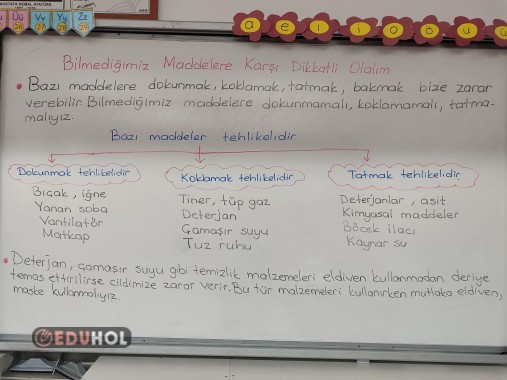 MUSTAFA KEMAL ATATÜRK
Üü Vv Yy Zz
26 27 28 29
a e ı i o ö u
Bilmediğimiz Maddelere Karşı Dikkatli Olalım
• Bazı maddelere dokunmak, koklamak, tatmak, bakmak bize zarar
verebilir. Bilmediğimiz maddelere dokunmamalı, koklamamalı, tatma-
malıyız.
Bazı maddeler tehlikelidir
Dokunmak tehlikelidir
Bıçak, iğne
Yanan soba
Vantilatör
Matkap
Koklamak tehlikelidir
Tiner, tüp gaz
Deterjan
Çamaşır suyu
Tuz ruhu
Tatmak tehlikelidir
Deterjanlar, asit
Kimyasal maddeler
Böcek ilacı
Kaynar su
• Deterjan, çamaşır suyu gibi temizlik malzemeleri eldiven kullanmadan deriye
temas ettirilirse cildimize zarar verir. Bu tür malzemeleri kullanırken mutlaka eldiven,
maske kullanmalıyız.
EDUHOL